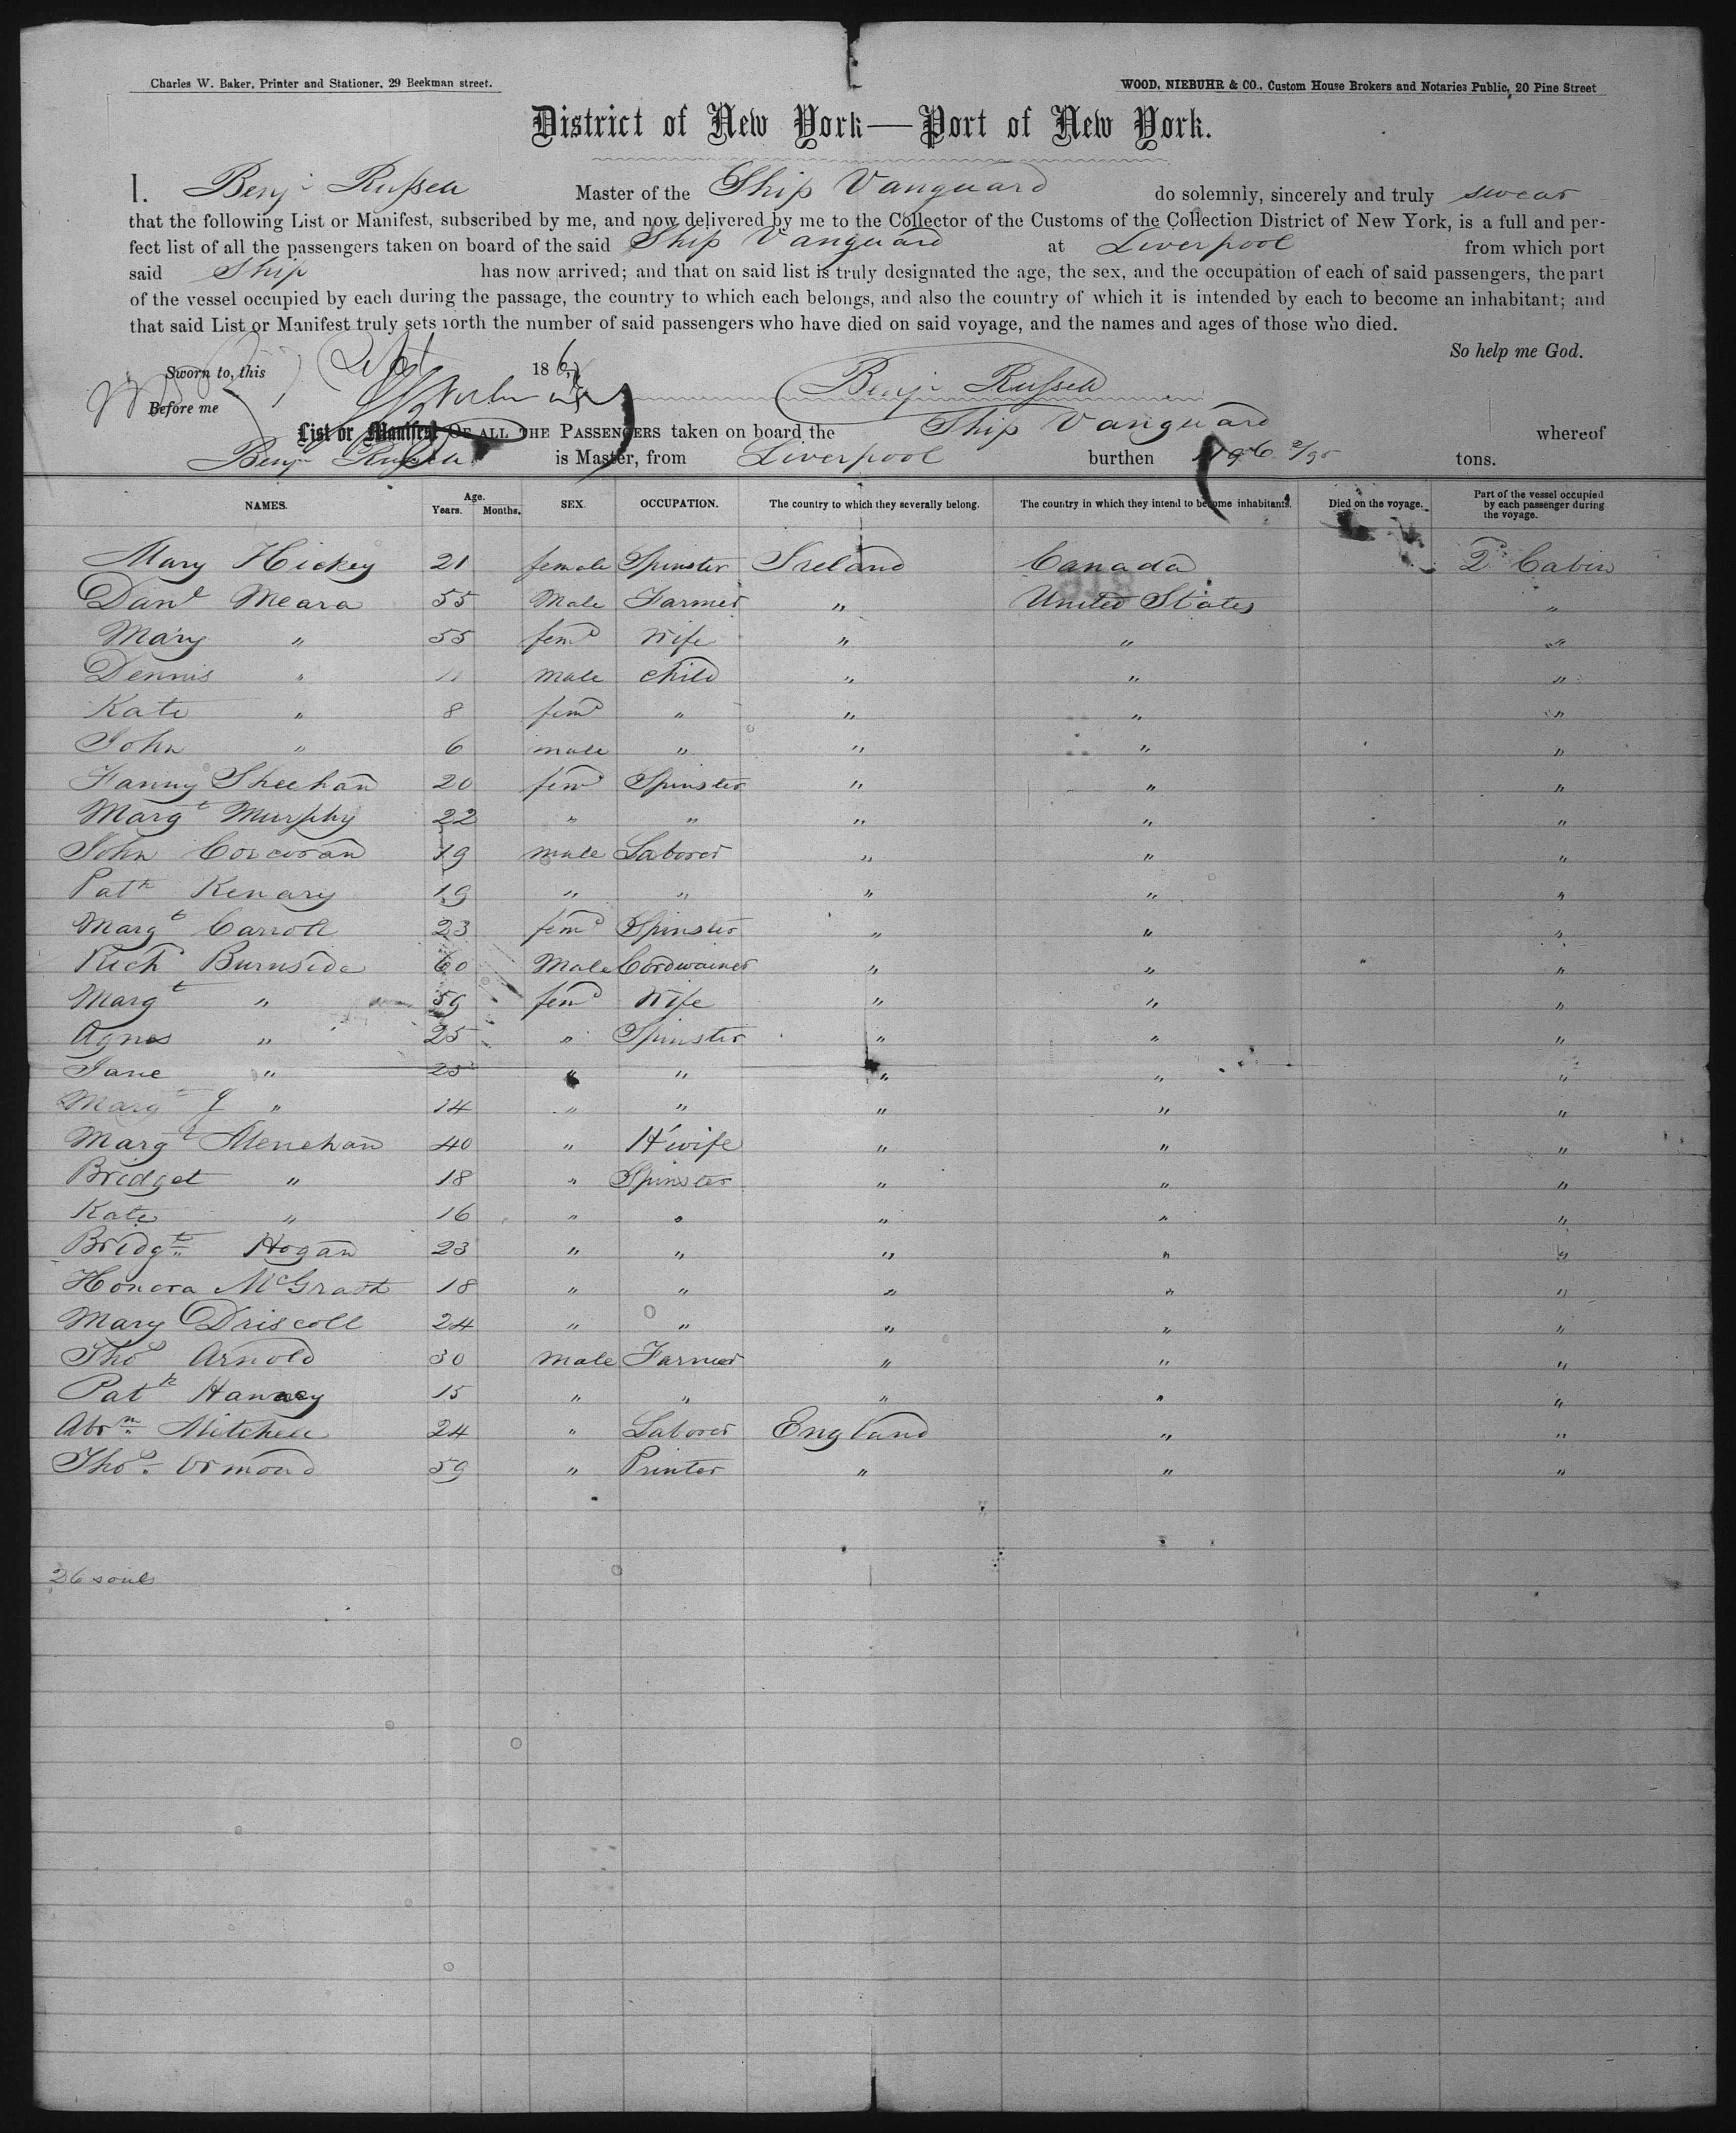 Charles W. Baker, Printer and Stationer, 29 Beekman street.
WOOD, NIEBUHR & CO., Custom House Brokers and Notaries Public, 20 Pine Street
District of New York—Port of New York.
I. Benj. Russell Master of the Ship Vanguard do solemnly, sincerely and truly swear
that the following List or Manifest, subscribed by me, and now delivered by me to the Collector of the Customs of the Collection District of New York, is a full and per-
fect list of all the passengers taken on board of the said Ship Vanguard at Liverpool from which port
said Ship has now arrived; and that on said list is truly designated the age, the sex, and the occupation of each of said passengers, the part
of the vessel occupied by each during the passage, the country to which each belongs, and also the country of which it is intended by each to become an inhabitant; and
that said List or Manifest truly sets forth the number of said passengers who have died on said voyage, and the names and ages of those who died.
So help me God.
Sworn to, this 186
Before me Benj. Russell
List or Manifest OF ALL THE PASSENGERS taken on board the Ship Vanguard whereof
Benj. Russell is Master, from Liverpool burthen tons.
NAMES. Age. Years. Months. SEX. OCCUPATION. The country to which they severally belong. The country in which they intend to become inhabitants. Died on the voyage. Part of the vessel occupied by each passenger during the voyage.
Mary Hickey 21 female Spinster Ireland Canada 2d Cabin
Danl Meara 55 Male Farmer " United States "
Mary " 55 feme Wife " " "
Dennis " 11 male child " " "
Kate " 8 feme " " " "
John " 6 male " " " "
Fanny Sheehan 20 feme Spinster " " "
Margt Murphy 22 " " " " "
John Corcoran 19 male Laborer " " "
Patk Kenary 19 " " " " "
Margt Carroll 23 feme Spinster " " "
Richd Burnside 60 Male Cordwainer " " "
Margt " 59 feme Wife " " "
Agnes " 25 " Spinster " " "
Jane " 23 " " " " "
Margt J " 14 " " " " "
Margt Menehan 40 " H'wife " " "
Bridget " 18 " Spinster " " "
Kate " 16 " " " " "
Bridgt Hogan 23 " " " " "
Honora McGrath 18 " " " " "
Mary Driscoll 24 " " " " "
Thos Arnold 30 male Farmer " " "
Patk Hanney 15 " " " " "
Abrm Mitchell 24 " Laborer England " "
Thos. Ormond 59 " Printer " " "
26 souls